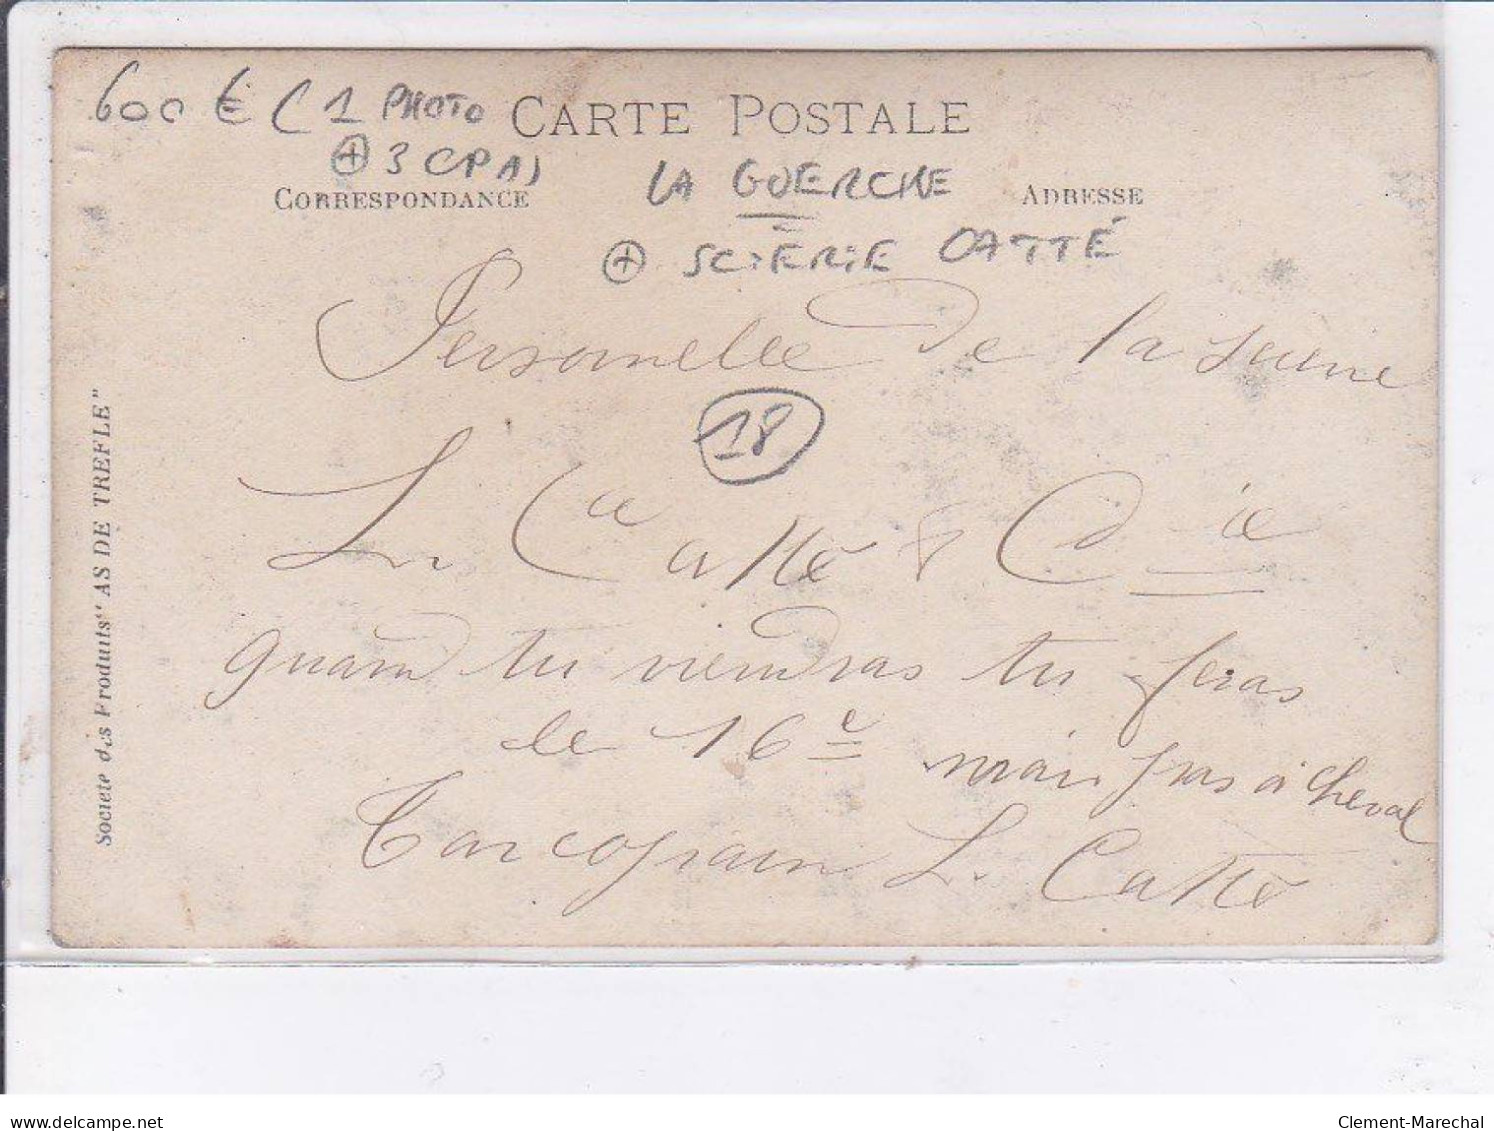 600 € (1 PHOTO
+ 3 CPA)
CARTE POSTALE
CORRESPONDANCE
LA GUERCHE
ADRESSE
+ SCIERIE CATTÉ
Personnelle de la
18
L. Catté & Cie
quand tu viendras tu feras
le 16e mais pas à cheval
L. Catté
Societe des Produits "AS DE TREFLE"
delcampe.net
Clement-Marechal